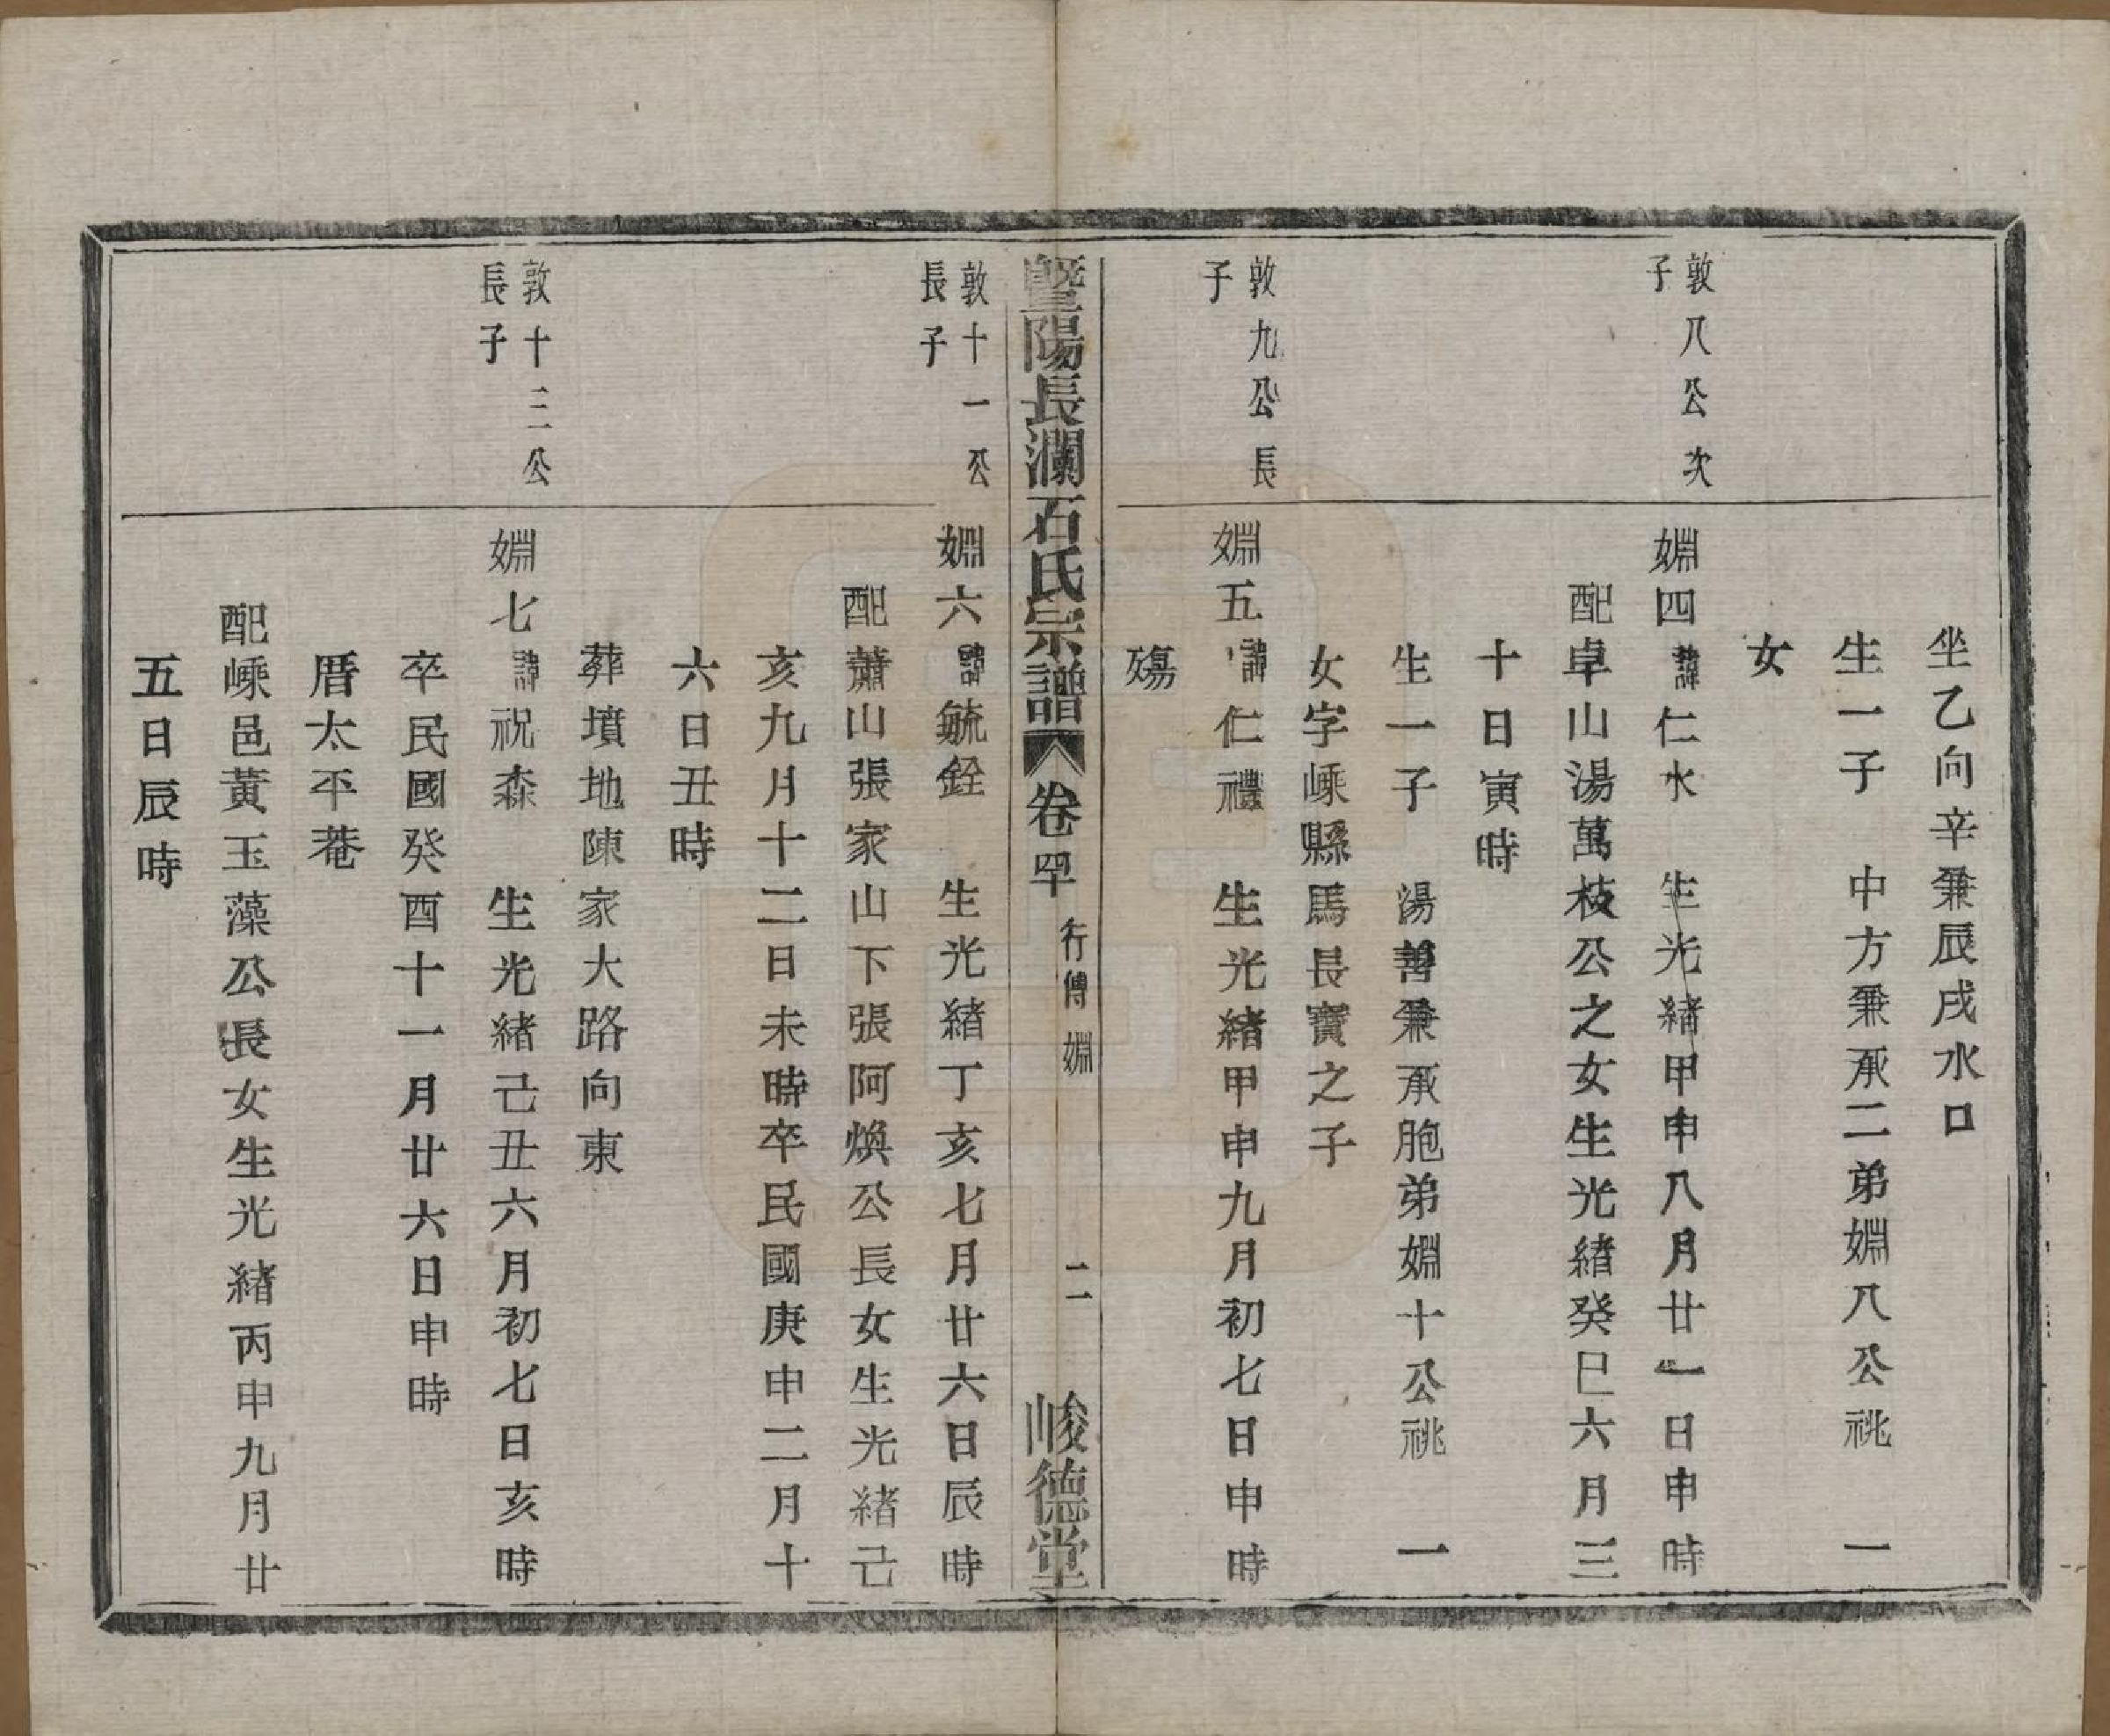 坐乙向辛兼辰戌水口
生一子　中方兼承二弟婣八公祧　一
女
敦八公次
子
婣四諱仁水　生光緒甲申八月廿一日申時
配卓山湯萬枝公之女生光緒癸巳六月三
十日寅時
生一子　湯善兼承胞弟婣十公祧　一
女字嵊縣馬長寶之子
敦九公長
子
婣五諱仁禮　生光緒甲申九月初七日申時
殤
暨陽長瀾石氏宗譜 卷罕 行傳 婣 二 峻德堂
敦十一公
長子
婣六諱毓銓　生光緒丁亥七月廿六日辰時
配蕭山張家山下張阿煥公長女生光緒己
亥九月十二日未時卒民國庚申二月十
六日丑時
葬墳地陳家大路向東
敦十三公
長子
婣七諱祝森　生光緒己丑六月初七日亥時
卒民國癸酉十一月廿六日申時
厝太平菴
配嵊邑黃玉藻公長女生光緒丙申九月廿
五日辰時